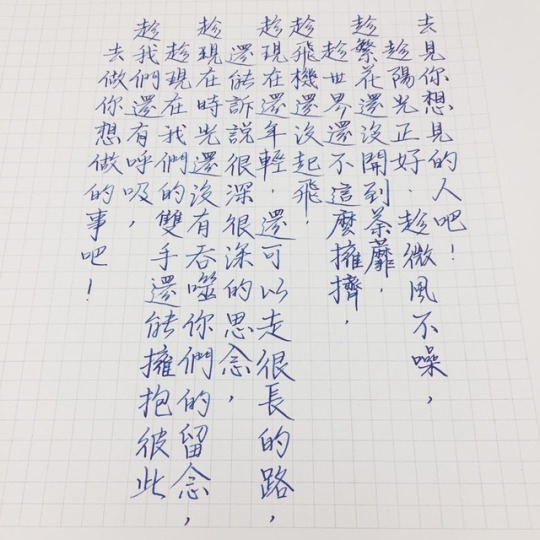 去見你想見的人吧！
趁陽光正好．趁微風不噪，
趁繁花還沒開到荼蘼，
趁世界還不這麼擁擠，
趁飛機還沒起飛，
趁現在還年輕．還可以走很長的路，
還能訴說很深很深的思念，
趁現在時光還沒有吞噬你們的留念，
趁現在我們的雙手還能擁抱彼此
趁我們還有呼吸，
去做你想做的事吧！